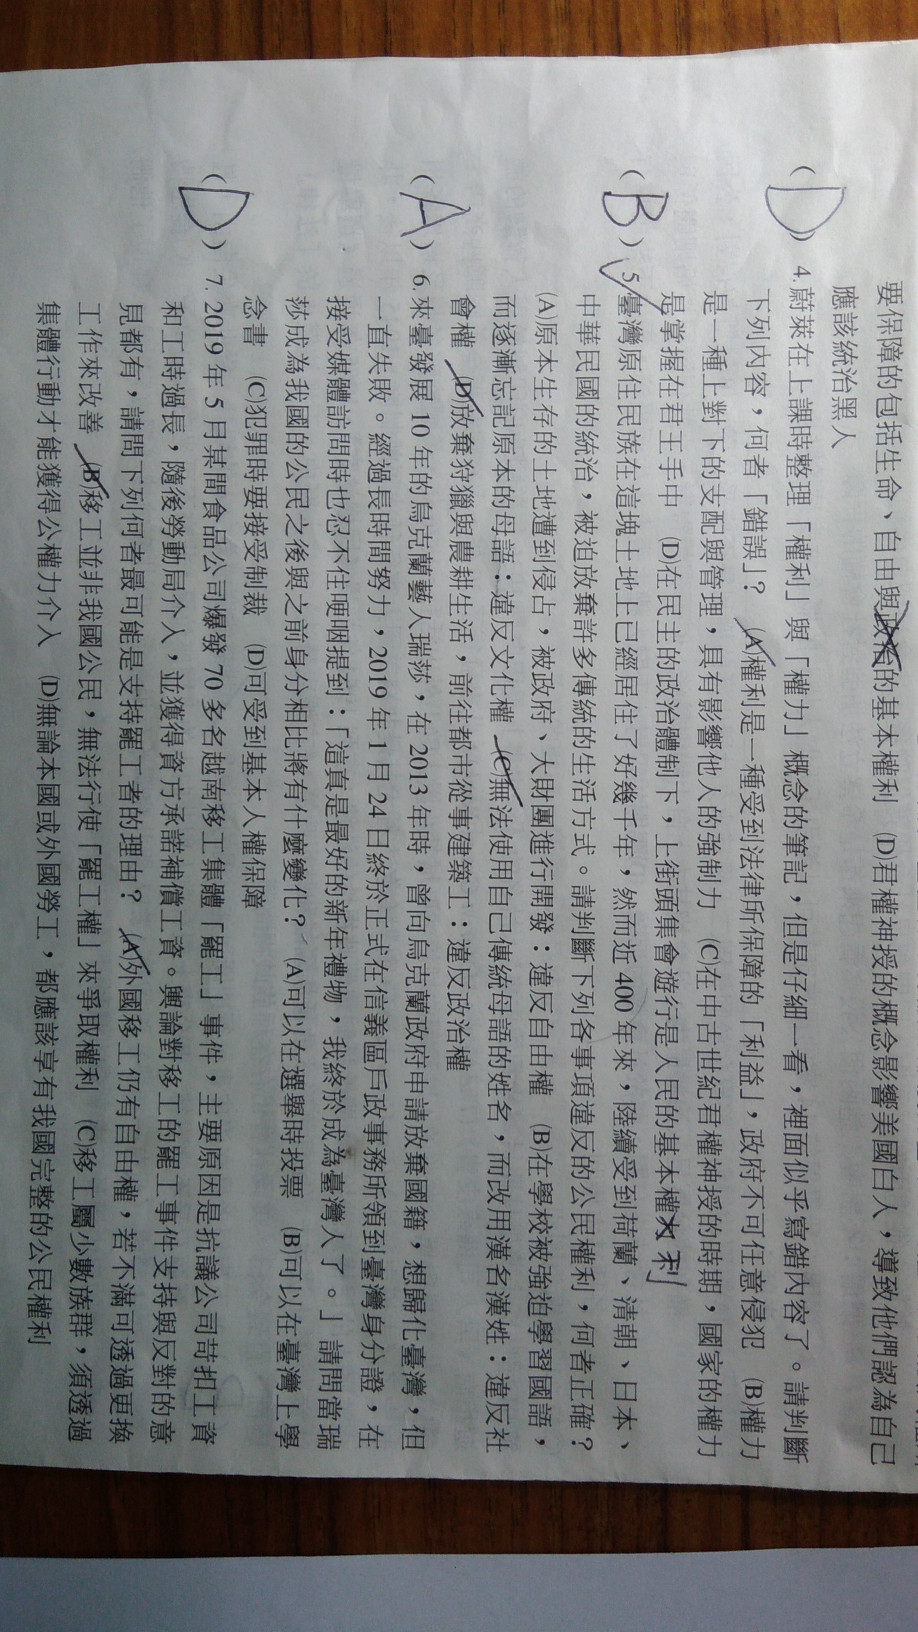 要保障的包括生命、自由與政治的基本權利　(D)君權神授的概念影響美國白人，導致他們認為自己
應該統治黑人
(D) 4. 蔚萊在上課時整理「權利」與「權力」概念的筆記，但是仔細一看，裡面似乎寫錯內容了。請判斷
下列內容，何者「錯誤」？　(A)權利是一種受到法律所保障的「利益」，政府不可任意侵犯　(B)權力
是一種上對下的支配與管理，具有影響他人的強制力　(C)在中古世紀君權神授的時期，國家的權力
是掌握在君王手中　(D)在民主的政治體制下，上街頭集會遊行是人民的基本權力 利
(B) 5. 臺灣原住民族在這塊土地上已經居住了好幾千年，然而近 400 年來，陸續受到荷蘭、清朝、日本、
中華民國的統治，被迫放棄許多傳統的生活方式。請判斷下列各事項違反的公民權利，何者正確？
(A)原本生存的土地遭到侵占，被政府、大財團進行開發：違反自由權　(B)在學校被強迫學習國語，
而逐漸忘記原本的母語：違反文化權　(C)無法使用自己傳統母語的姓名，而改用漢名漢姓：違反社
會權　(D)放棄狩獵與農耕生活，前往都市從事建築工：違反政治權
(A) 6. 來臺發展 10 年的烏克蘭藝人瑞莎，在 2013 年時，曾向烏克蘭政府申請放棄國籍，想歸化臺灣，但
一直失敗。經過長時間努力，2019 年 1 月 24 日終於正式在信義區戶政事務所領到臺灣身分證，在
接受媒體訪問時也忍不住哽咽提到：「這真是最好的新年禮物，我終於成為臺灣人了。」請問當瑞
莎成為我國的公民之後與之前身分相比將有什麼變化？　(A)可以在選舉時投票　(B)可以在臺灣上學
念書　(C)犯罪時要接受制裁　(D)可受到基本人權保障
(D) 7. 2019 年 5 月某間食品公司爆發 70 多名越南移工集體「罷工」事件，主要原因是抗議公司苛扣工資
和工時過長，隨後勞動局介入，並獲得資方承諾補償工資。輿論對移工的罷工事件支持與反對的意
見都有，請問下列何者最可能是支持罷工者的理由？　(A)外國移工仍有自由權，若不滿可透過更換
工作來改善　(B)移工並非我國公民，無法行使「罷工權」來爭取權利　(C)移工屬少數族群，須透過
集體行動才能獲得公權力介入　(D)無論本國或外國勞工，都應該享有我國完整的公民權利